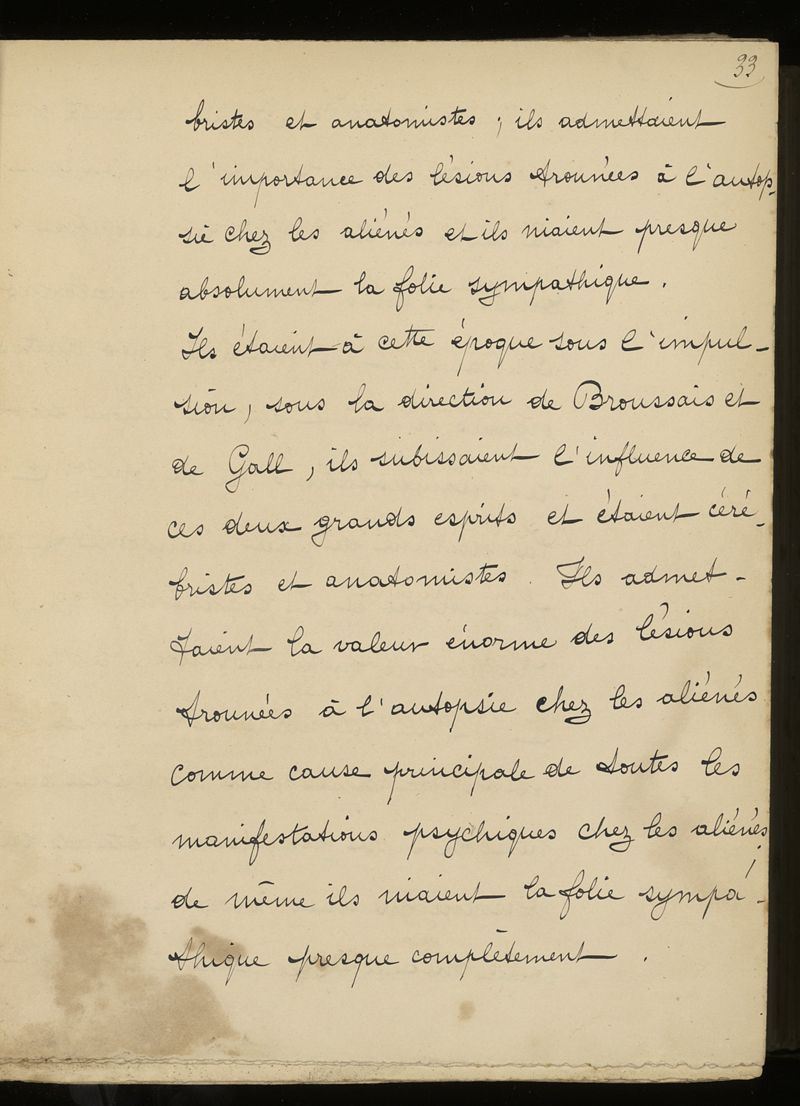 33
bristes et anatomistes ; ils admettaient
l'importance des lésions trouvées à l'autop-
sie chez les aliénés et ils niaient presque
absolument la folie sympathique.
Ils étaient à cette époque sous l'impul-
sion, sous la direction de Broussais et
de Gall, ils subissaient l'influence de
ces deux grands esprits et étaient céré-
bristes et anatomistes. Ils admet-
taient la valeur énorme des lésions
trouvées à l'autopsie chez les aliénés
comme cause principale de toutes les
manifestations psychiques chez les aliénés ;
de même ils niaient la folie sympa-
thique presque complètement.